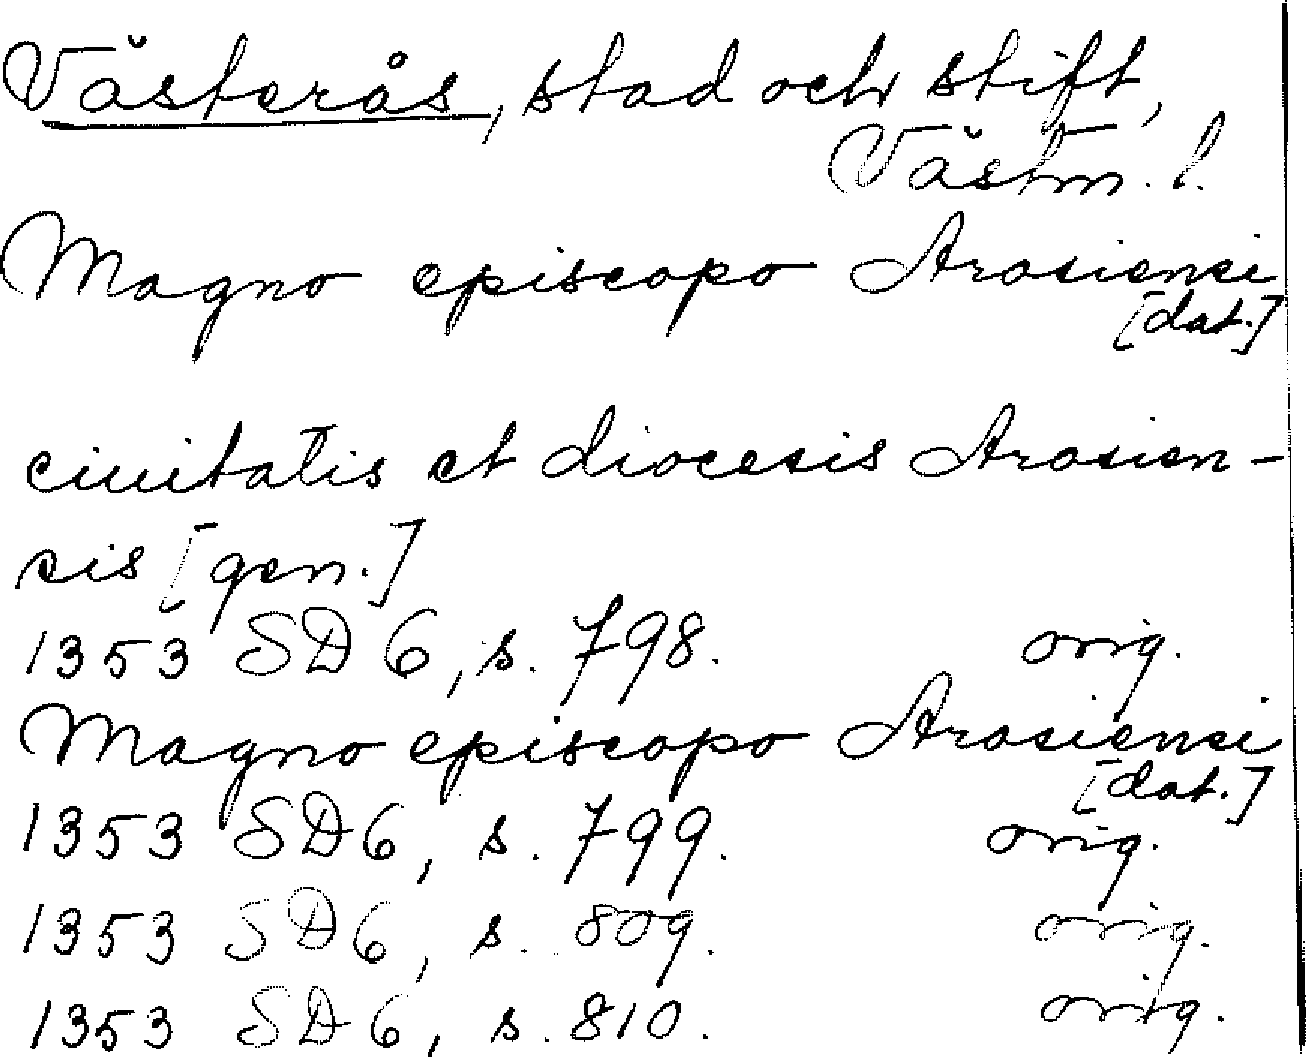 Västerås, stad och stift,
Västm. l.
Magno episcopo Arosiensi
[dat.]
ciuitatis et diocesis Arosien-
sis [gen.]
1353 SD 6, s. 798. orig.
Magno episcopo Arosiensi
[dat.]
1353 SD 6, s. 799. orig.
1353 SD 6, s. 809. orig.
1353 SD 6, s. 810. orig.